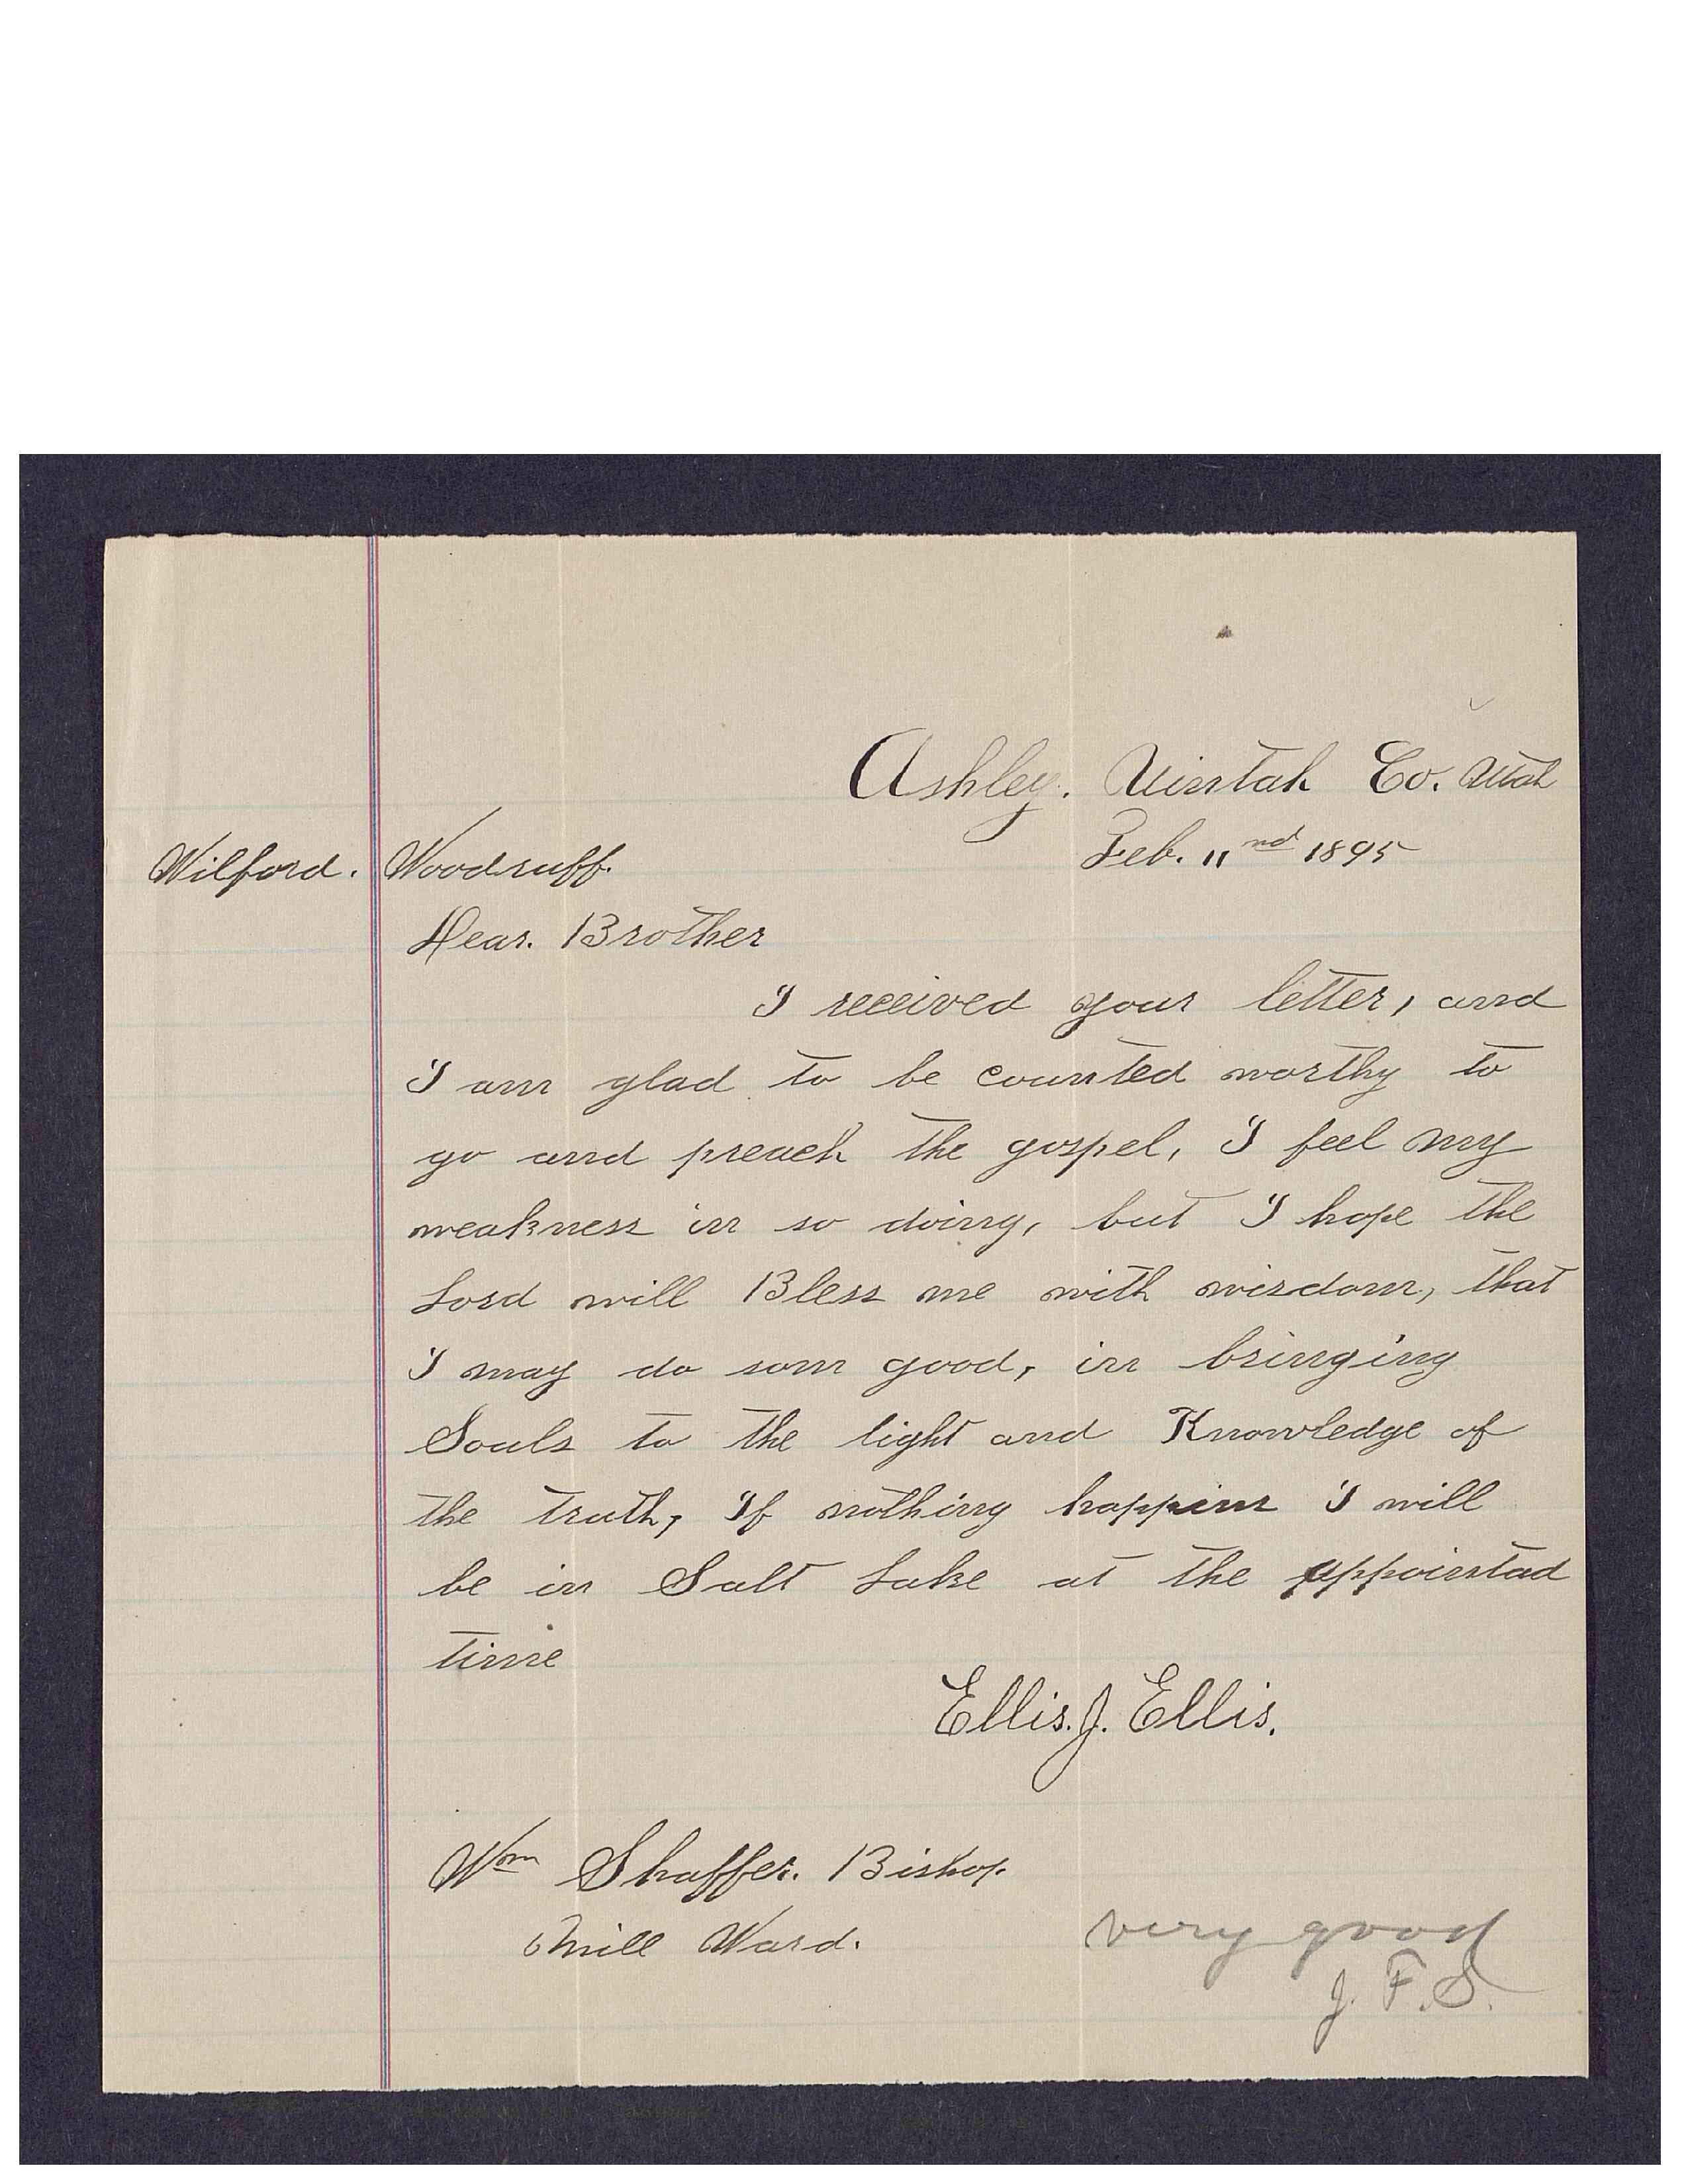 Ashley. Uintah Co. Utah
Feb. 11nd 1895
Wilford. Woodruff.
Dear. Brother
I received your letter, and
I am glad to be counted worthy to
go and preach the gospel, I feel my
weakness in so doing, but I hope the
Lord will Bless me with wisdom, that
I may do som good, in bringing
Souls to the light and Knowledge of
the truth, If nothing happins I will
be in Salt Lake at the appointad
time
Ellis. J. Ellis.
Wm Shaffer. Bishop.
Mill Ward.
very good
J. F. S.